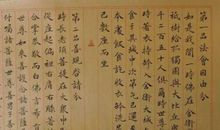 第一品法會因由分
如是我聞一時佛在舍衛
祇樹給孤獨園與大比丘
千二百五十人俱爾時世
時著衣持鉢入舍衛大城
食於其城中次第乞已還至
本處飯食訖收衣鉢洗足
已敷座而坐
第二品善現啟請分
時長老須菩提在大眾中
從座起偏袒右肩右膝著
合掌恭敬而白佛言希有
付囑諸菩薩世尊善男子